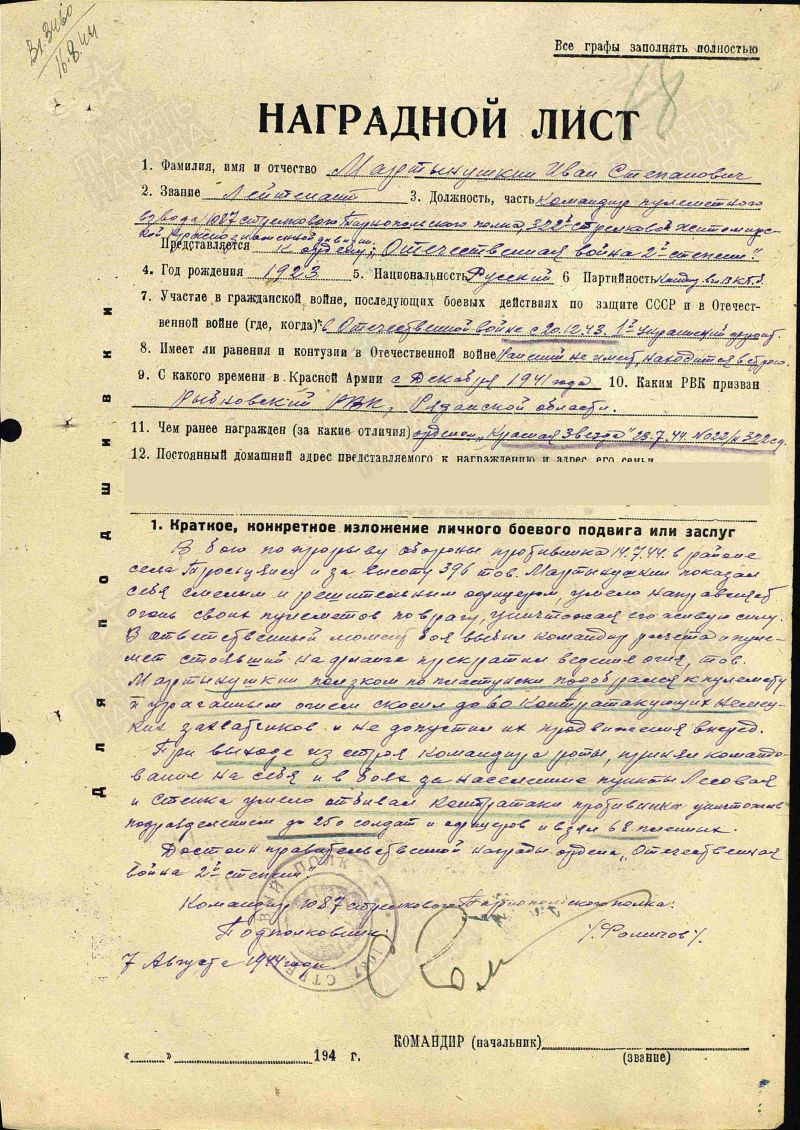 Вх. 3460
16.8.44
Все графы заполнять полностью
18
НАГРАДНОЙ ЛИСТ
1. Фамилия, имя и отчество Мартынушкин Иван Степанович
2. Звание Лейтенант 3. Должность, часть Командир пулеметного
взвода 1087 стрелкового Тарнопольского полка 322й стрелковой Житомирс-
кой Краснознаменной дивизии.
Представляется К ордену: „Отечественная война 2й степени"
4. Год рождения 1923 5. Национальность Русский 6 Партийность Канд. ВКП.б.
7. Участие в гражданской войне, последующих боевых действиях по защите СССР и в Отечест-
венной войне (где, когда) в Отечественной войне с 20.12.43. 1й Украинский фронт.
8. Имеет ли ранения и контузии в Отечественной войне Ранений не имеет, находится в строю.
9. С какого времени в Красной Армии с Декабря 1941 года 10. Каким РВК призван
Рыбновский РВК, Рязанской области.
11. Чем ранее награжден (за какие отличия) орденом „Красная Звезда" 23.7.44. №022/н 322 сд.
12. Постоянный домашний адрес представляемого к награждению и адрес его семьи
1. Краткое, конкретное изложение личного боевого подвига или заслуг
В бою по прорыву обороны противника 14.7.44. в районе
села и за высоту 396 тов. Мартынушкин показал
себя смелым и решительным офицером, умело направлял
огонь своих пулеметов по врагу, уничтожая его живую силу.
В ответственный момент боя выбыл командир расчета и пуле-
мет стоявший на фланге прекратил ведение огня, тов.
Мартынушкин ползком по пластунски подобрался к пулемету
и ураганным огнем скосил до 60 контратакующих немец-
ких захватчиков и не допустил их продвижения вперед.
При выходе из строя командира роты, принял командо-
вание на себя и в боях за населенные пункты Лесовая
и Стенка умело отбивал контратаки противника уничтожив
подразделением до 250 солдат и офицеров и взял 68 пленных.
Достоин правительственной награды ордена „Отечественная
война 2й степени"
Командир 1087 стрелкового Тарнопольского полка:
Подполковник: /Фомичов/.
7 Августа 1944 года.
КОМАНДИР (начальник)
„ " 194 г. (звание)
Для подшивки
1087 СТРЕЛКОВЫЙ ПОЛК
ПАМЯТЬ НАРОДА